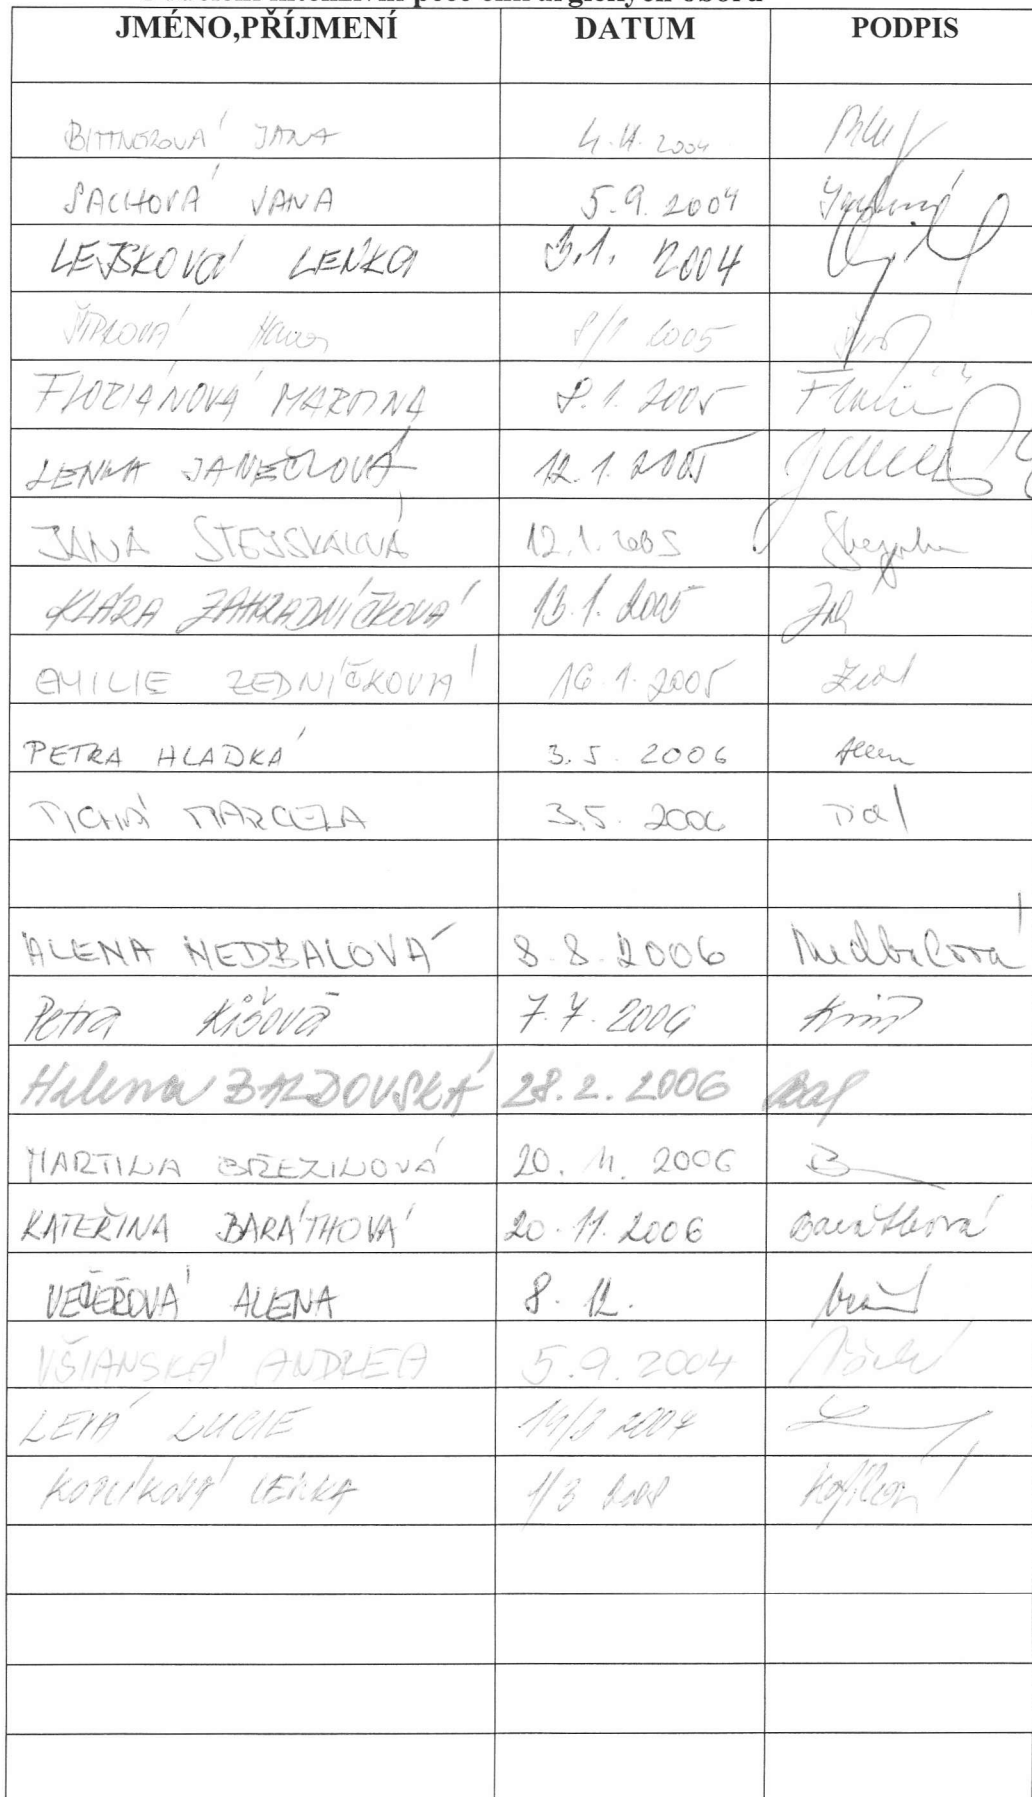 intenzivní péče chirurgických oborů
JMÉNO,PŘÍJMENÍ DATUM PODPIS
BITTNEROVÁ JANA 4.11.2004
SACHOVÁ JANA 5.9.2004
LEJSKOVÁ LENKA 3.1. 2004
8/1 2005
FLORIÁNOVÁ MARTINA 8.1.2005
LENKA JANEČKOVÁ 12.1.2005
JANA STEJSKALOVÁ 12.1.2005
KLÁRA ZAHRADNÍČKOVÁ 13.1.2005
EMILIE ZEDNÍČKOVÁ 16.1.2005
PETRA HLADKÁ 3.5.2006
TICHÁ MARCELA 3.5.2006
ALENA NEDBALOVÁ 8.8.2006 Nedbalová
Petra 7.7.2006
Helena BALDOVSKÁ 28.2.2006 Bal
MARTINA BŘEZINOVÁ 20.11.2006 B
KATEŘINA BARÁTHOVÁ 20.11.2006 Baráthová
VEČEŘOVÁ ALENA 8.12.
VŠIANSKÁ ANDREA 5.9.2004
LUCIE
LENKA 1/3